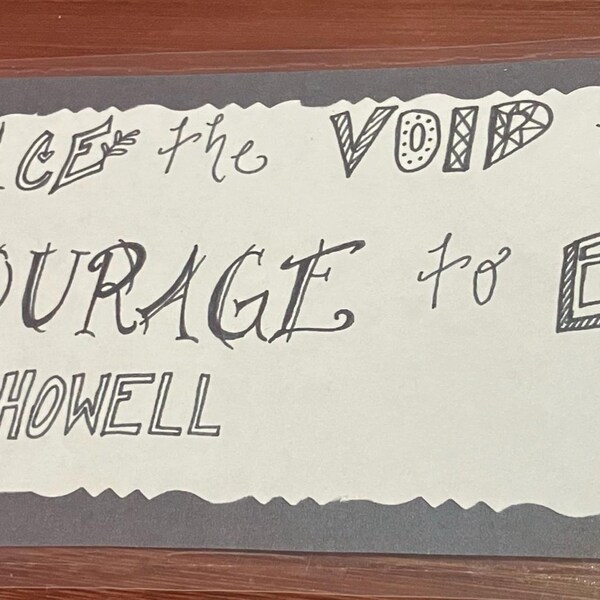 ACE the VOID
OURAGE to
HOWELL